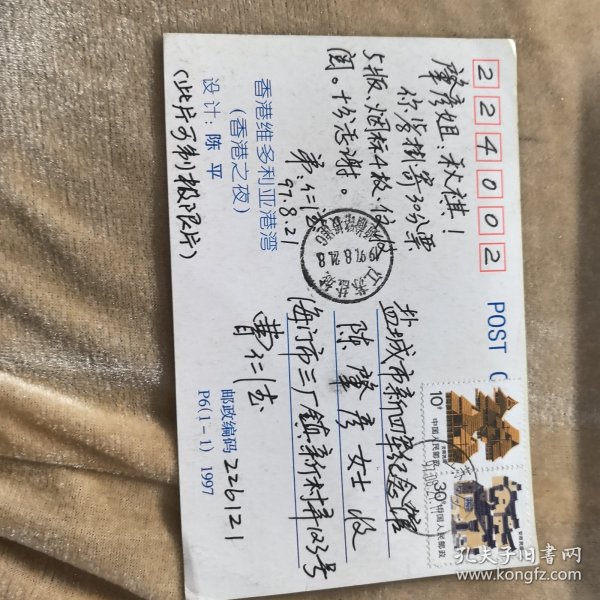 224002
肇彦姐、秋祺!
你岁掛寄30分票
5版、烟标4枚、但收
园。十分感谢。
弟:仁法
97.8.21
香港维多利亚港湾
(香港之夜)
设计:陈 平
(此片可制极限片)
POST
盐城市新四军纪念馆
陈肇彦女士收
海门市三厂镇新村弄123号
曹仁法
邮政编码 226121
P6(1-1) 1997
10分
中国人民邮政
30分
中国人民邮政
孔夫子旧书网
www.kongfz.com